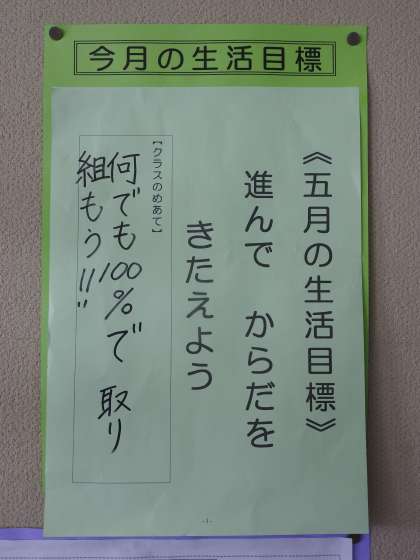 今月の生活目標
《五月の生活目標》
進んで からだを
きたえよう
【クラスのめあて】
何でも100%で 取り
組もう!!
-1-